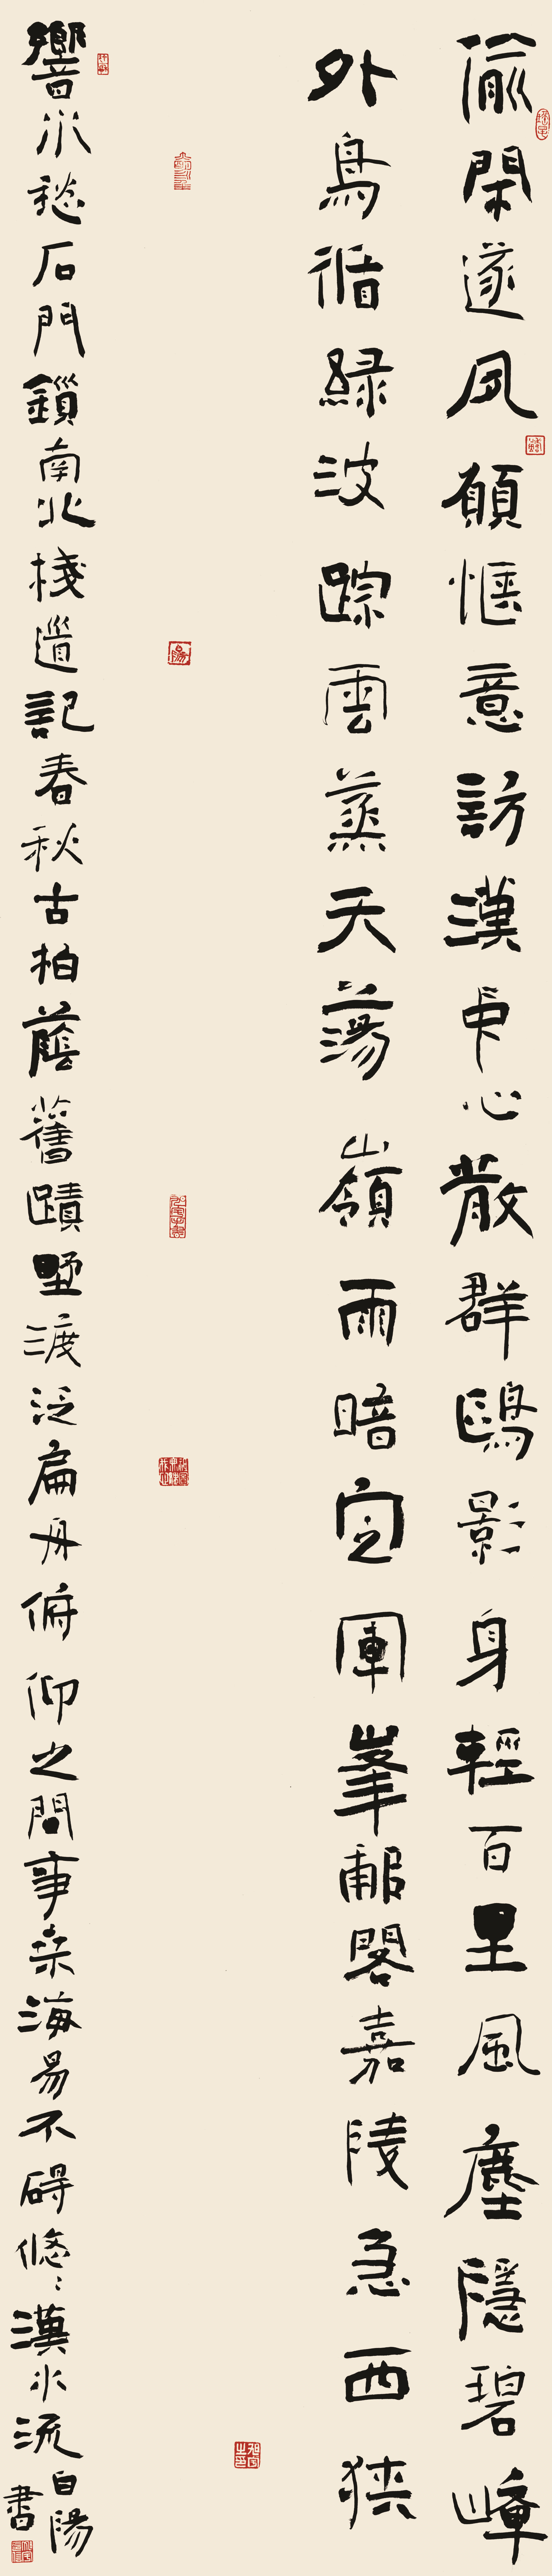 偷閑遂夙願惬意訪漢中心散群鷗影身輕百里風塵隱碧嶂
外鳥循緑波踪雲蒸天蕩嶺雨暗定軍峯郙閣嘉陵急西狹
響水愁石門鎖南北棧道記春秋古柏蔭舊蹟墅渡泛扁舟俯仰之間事桒海易不碍悠〻漢水流
白陽
書